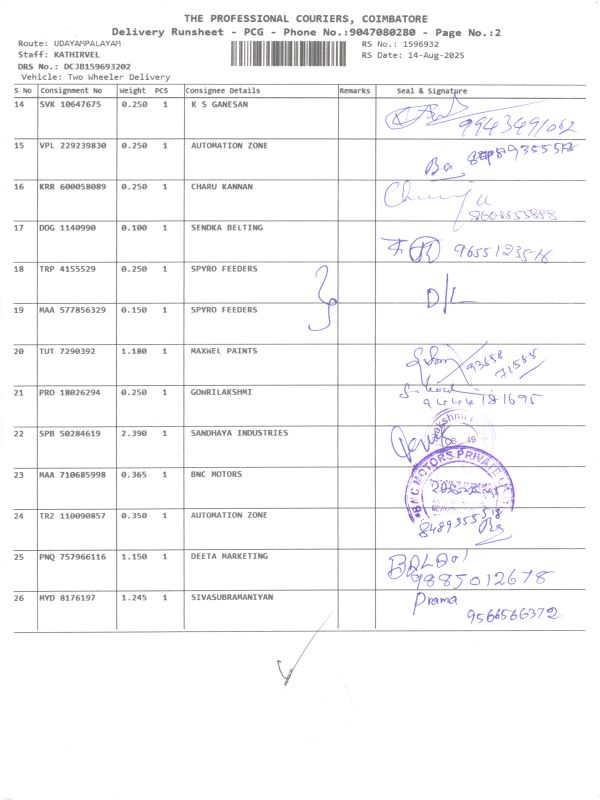 THE PROFESSIONAL COURIERS, COIMBATORE
Delivery Runsheet - PCG - Phone No.:9047080280 - Page No.:2
Route: UDAYAMPALAYAM RS No.: 1596932
Staff: KATHIRVEL RS Date: 14-Aug-2025
DRS No.: DCJB159693202
Vehicle: Two Wheeler Delivery
S No Consignment No Weight PCS Consignee Details Remarks Seal & Signature
14 SVK 10647675 0.250 1 K S GANESAN
9943491062
15 VPL 229239830 0.250 1 AUTOMATION ZONE
16 KRR 600058089 0.250 1 CHARU KANNAN
17 DDG 1140990 0.100 1 SENDKA BELTING
9655123516
18 TRP 4155529 0.250 1 SPYRO FEEDERS
D/L
19 MAA 577856329 0.150 1 SPYRO FEEDERS
20 TUT 7290392 1.180 1 MAXWEL PAINTS
21 PRO 18026294 0.250 1 GOWRILAKSHMI
9444181695
22 SPB 50284619 2.390 1 SANDHAYA INDUSTRIES
23 MAA 710685998 0.365 1 BNC MOTORS
BNC MOTORS PRIVATE
24 TRZ 110090857 0.350 1 AUTOMATION ZONE
8489355518
25 PNQ 757966116 1.150 1 DEETA MARKETING
9885012678
26 MYD 8176197 1.245 1 SIVASUBRAMANIYAN
Prama
9566566372